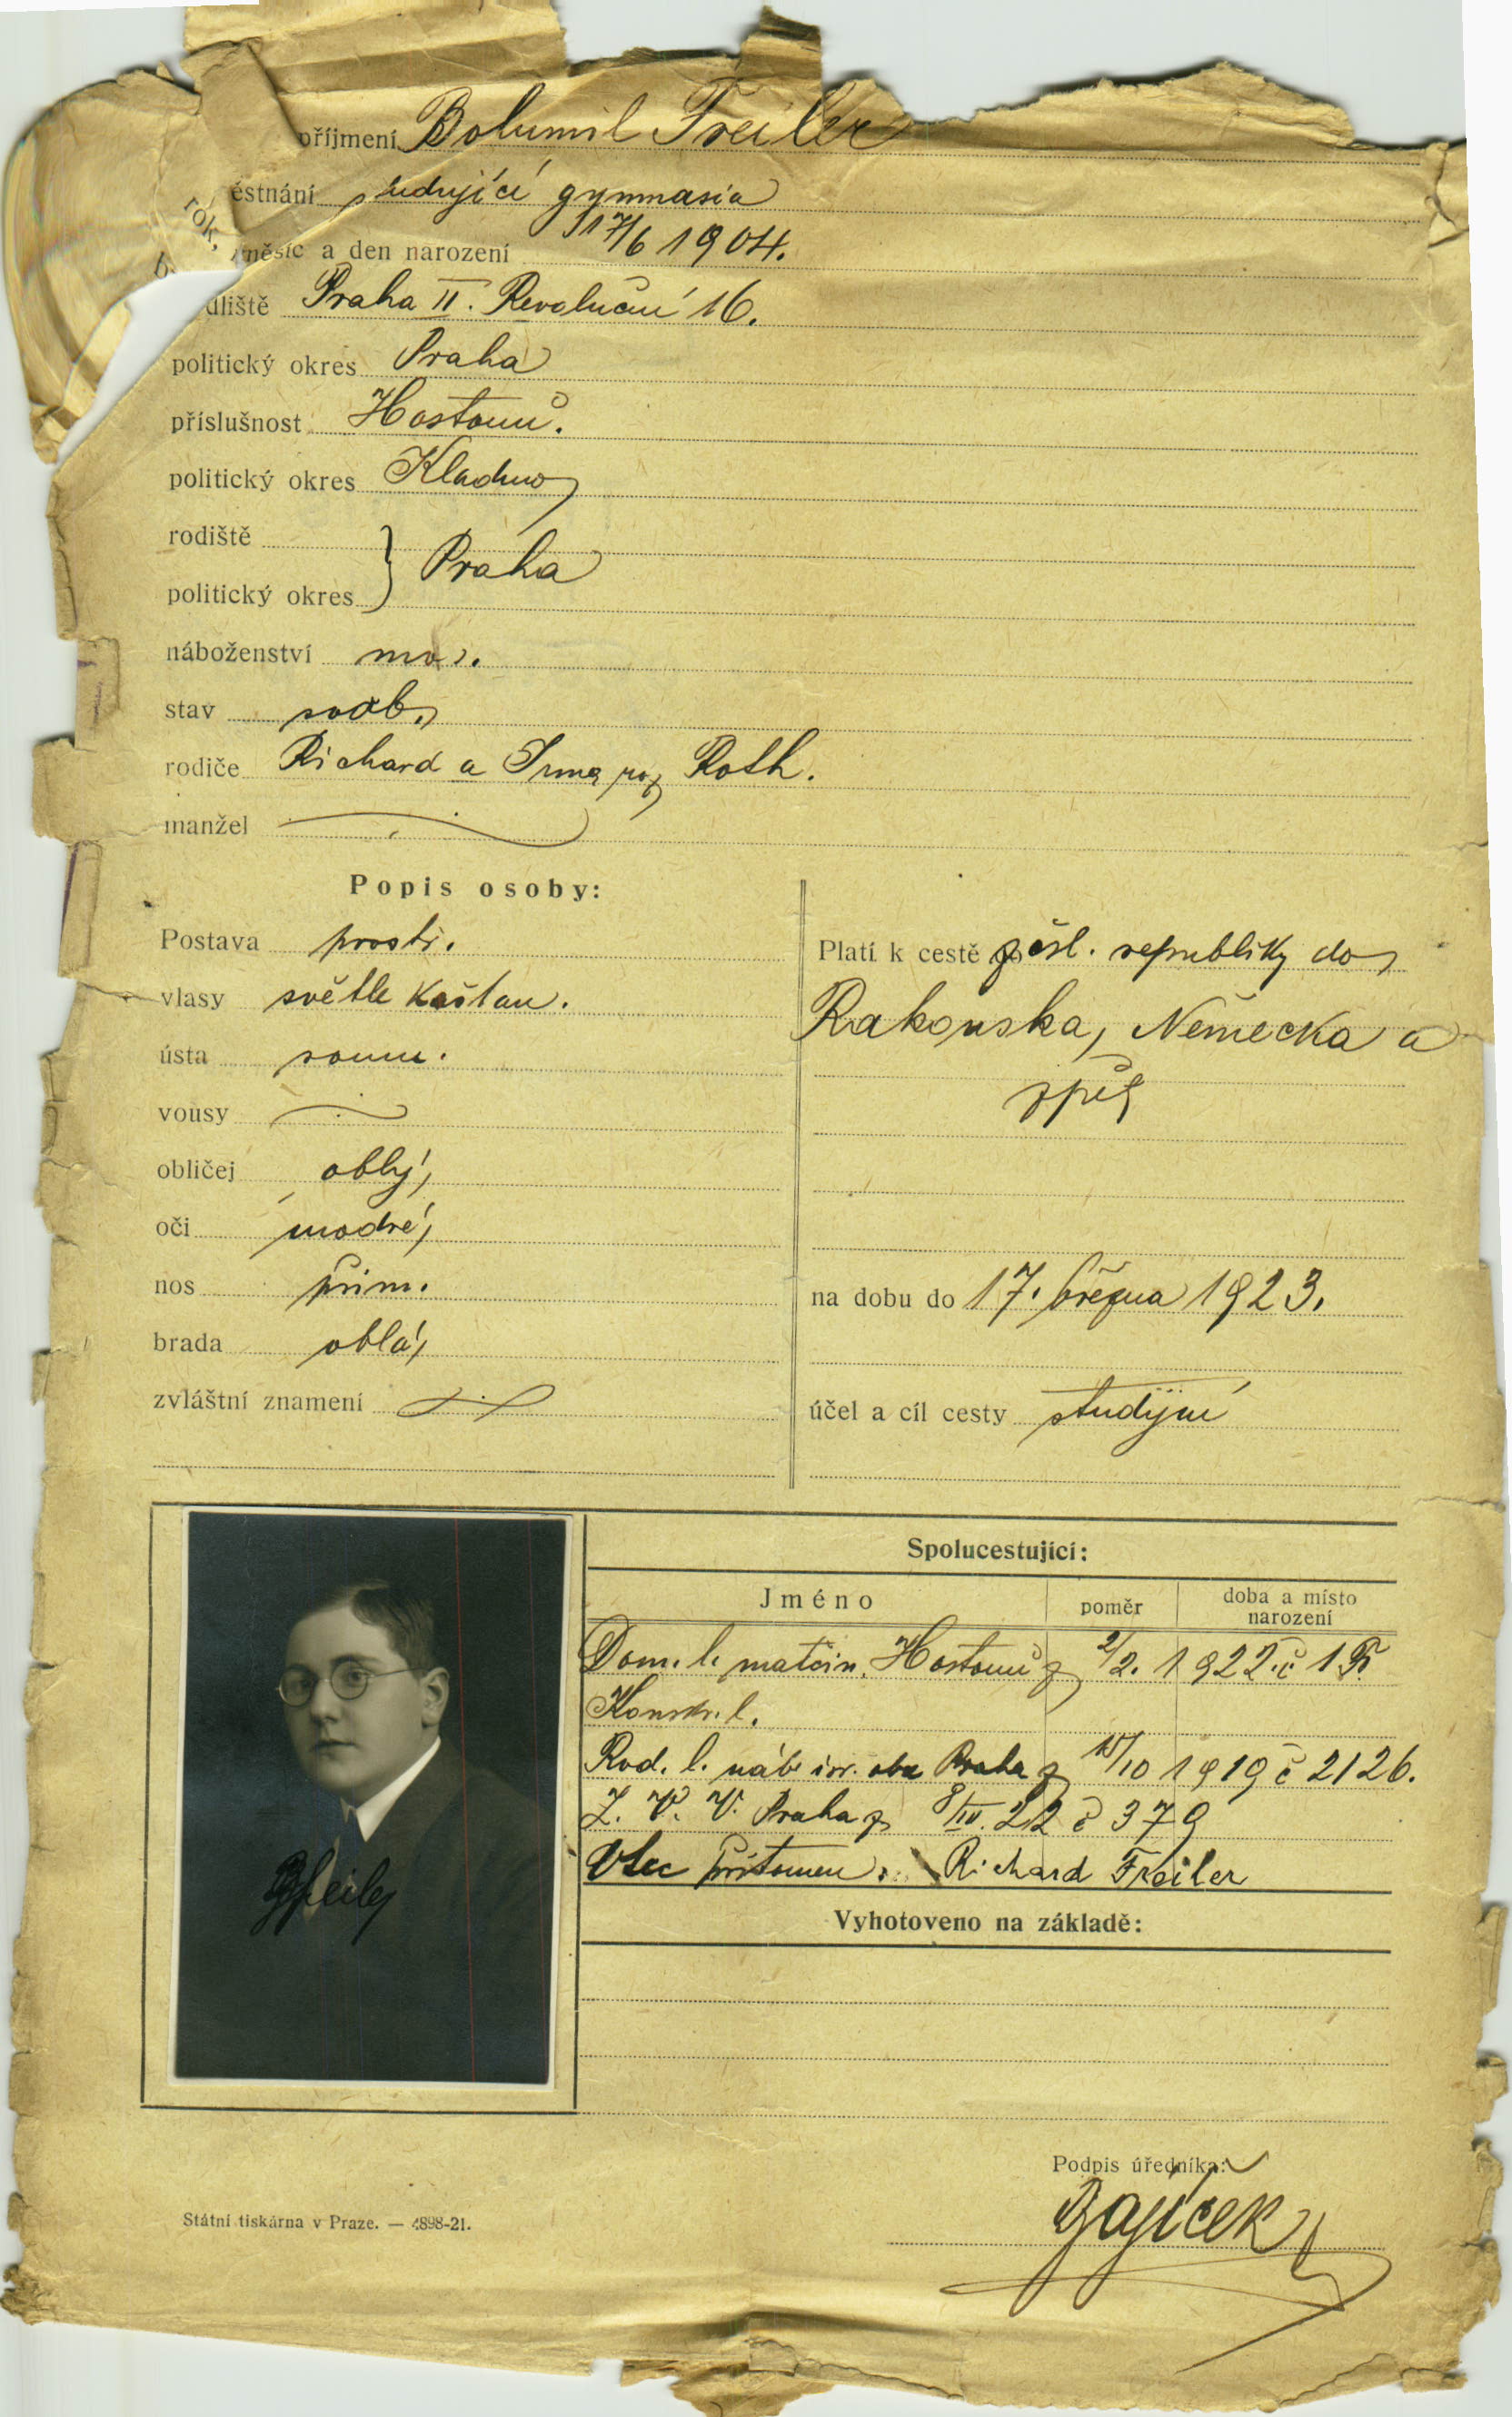 příjmení Bohumil Freiler
ěstnání studující gymnasia
rok, měsíc a den narození 17/6 1904.
b dliště Praha II. Revoluční 16.
politický okres Praha
příslušnost Hostouň.
politický okres Kladno
rodiště
} Praha
politický okres
náboženství mos.
stav svob.
rodiče Richard a Irma roz. Roth.
manžel
Popis osoby:
Postava prostř.
vlasy světle kaštan.
ústa soum.
vousy
obličej oblý
oči modré
nos přim.
brada oblá
zvláštní znamení
Platí k cestě z čsl. republiky do
Rakouska, Německa a
zpět
na dobu do 17. března 1923.
účel a cíl cesty studijní
Spolucestující:
Jméno poměr doba a místo narození
Dom. l. matčin, Hostouň z 2/2. 1922 č 1
Konskr. l.
Rod. l. náb. isr. obce Praha z 15/10 1919 č 2126.
Z. V. V. Praha z 8/IV. 22 č 379
Otec přítomen: Richard Freiler
BFreiler
Vyhotoveno na základě:
Podpis úředníka:
Státní tiskárna v Praze. — 4898-21.